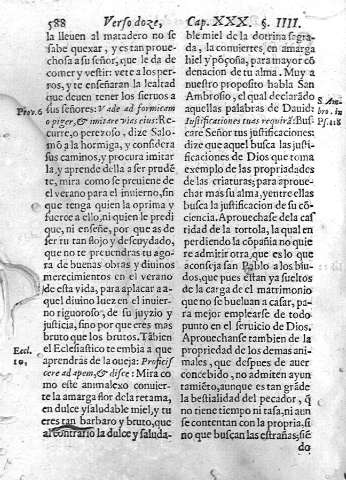 588 Verso doze,
la lleuen al matadero no se
sabe quexar, y es tan proue-
chosa a su señor, que le da de
comer y vestir: vete a los per-
ros, y te enseñaran la lealtad
que deuen tener los sieruos a
Prou.6 sus señores: Vade ad formicam
o piger, & imitare vias eius: Re-
curre, o perezoso, dize Salo-
mō a la hormiga, y considera
sus caminos, y procura imitar
la, y aprende della a ser pruden
te, mira como se preuiene de
el verano para el inuierno, sin
que tenga quien la oprima y
fuerce a ello, ni quien le predi
que, ni enseñe, por que as de
ser tu tan flojo y descuydado,
que no te preuendras tu ago
ra de buenas obras y diuinos
merecimientos en el verano
de esta vida, para aplacar a a-
quel diuino luez en el inuier-
no riguroso, de su juyzio y
justicia, sino por que eres mas
bruto que los brutos. Tābien
Eccl. 10, el Eclesiastico te embia a que
aprendras de la oueja:
cere ad apem, & disce: Mira co
mo este animalexo conuier-
te la amarga flor de la retama,
en dulce y saludable miel, y tu
eres tan barbaro y bruto, que
al contrario la dulce y saluda-
Cap. XXX. §. IIII.
ble miel de la dotrina segra-
da, la conuiertes en amarga
hiel y pōçoña, para mayor cō
denacion de tu alma. Muy a
nuestro proposito habla San
Ambrosio, el qual declarādo
aquellas palabras de Dauid:
S. Ambro. in Ps.118 Iustificationes tuas requirā: Bus-
care Señor tus justificaciones
dize que aquel busca las justi-
ficaciones de Dios que toma
exemplo de las propriedades
de las criaturas; para aproue-
char mas su alma, y entre ellas
busca la justificacion de su cō-
ciencia. Aprouechase de la cas
tidad de la tortola, la qual en
perdiendo la cōpañia no quie
re admitir otra, que es lo que
aconseja san Pablo a los biu-
dos, que pues estan ya sueltos
de la carga de el matrimonio
que no se bueluan a casar, pa-
ra mejor emplearse de todo
punto en el seruicio de Dios.
Aprouechanse tambien de la
propriedad de los demas ani-
males, que despues de auer
concebido, no admiten ayun
tamiēto, aunque es tan grāde
la bestialidad del pecador, q̄
no tiene tiempo ni tasa, ni aun
se contentan con la propria, si
no que buscan las estrañas; siē
do